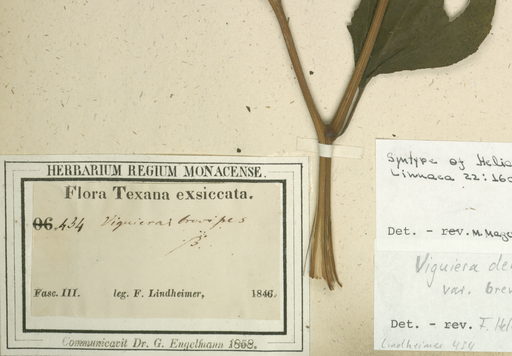 HERBARIUM REGIUM MONACENSE.
Flora Texana exsiccata.
06.434 Viguiera brevipes
β.
Fasc. III. leg. F. Lindheimer, 1846.
Communicavit Dr. G. Engelmann 1868.
Syntype of Helia
Linnaea 22:160
Det. - rev. M. Mag
Viguiera de
var. brev
Det. - rev. F. Hel
Lindheimer 434